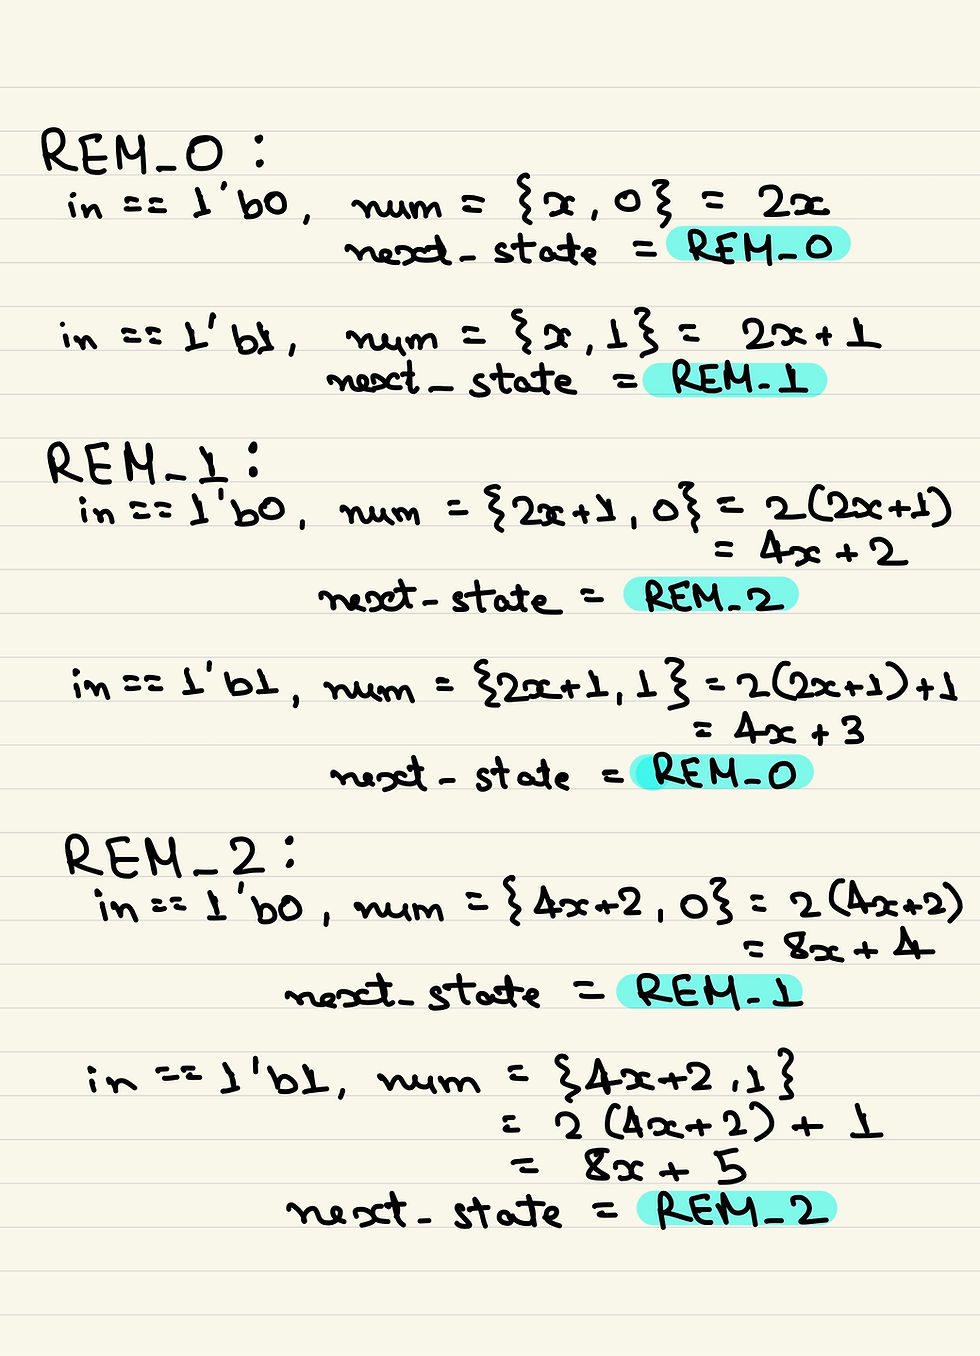 REM_0 :
in == 1'b0, num = {x, 0} = 2x
next_state = REM_0
in == 1'b1, num = {x, 1} = 2x+1
next_state = REM_1
REM_1 :
in == 1'b0, num = {2x+1, 0} = 2(2x+1)
= 4x + 2
next_state = REM_2
in == 1'b1, num = {2x+1, 1} = 2(2x+1)+1
= 4x + 3
next_state = REM_0
REM_2 :
in == 1'b0, num = {4x+2, 0} = 2(4x+2)
= 8x + 4
next_state = REM_1
in == 1'b1, num = {4x+2, 1}
= 2 (4x+2) + 1
= 8x + 5
next_state = REM_2